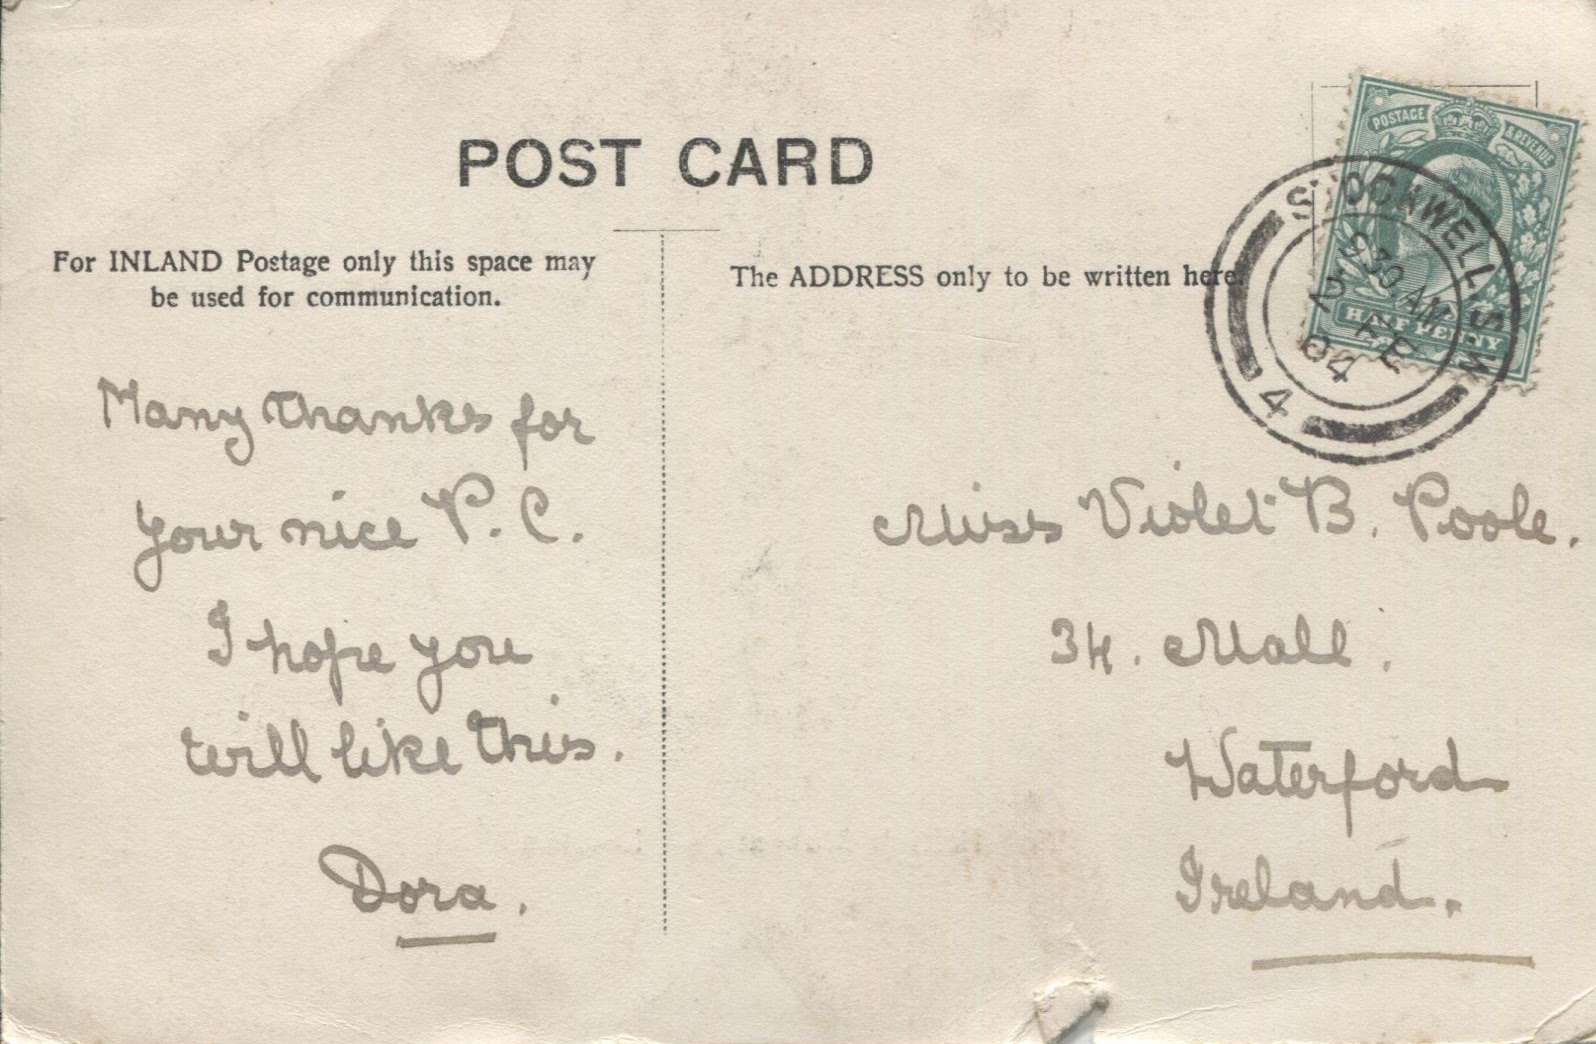 POST CARD
For INLAND Postage only this space may
be used for communication.
The ADDRESS only to be written here.
POSTAGE & REVENUE
HALF PENNY
STOCKWELL. S.W
9 30 AM
2 FE
04
4
Many thanks for
your nice P. C.
I hope you
will like this.
Dora.
Miss Violet B. Poole.
34. Mall.
Waterford
Ireland.